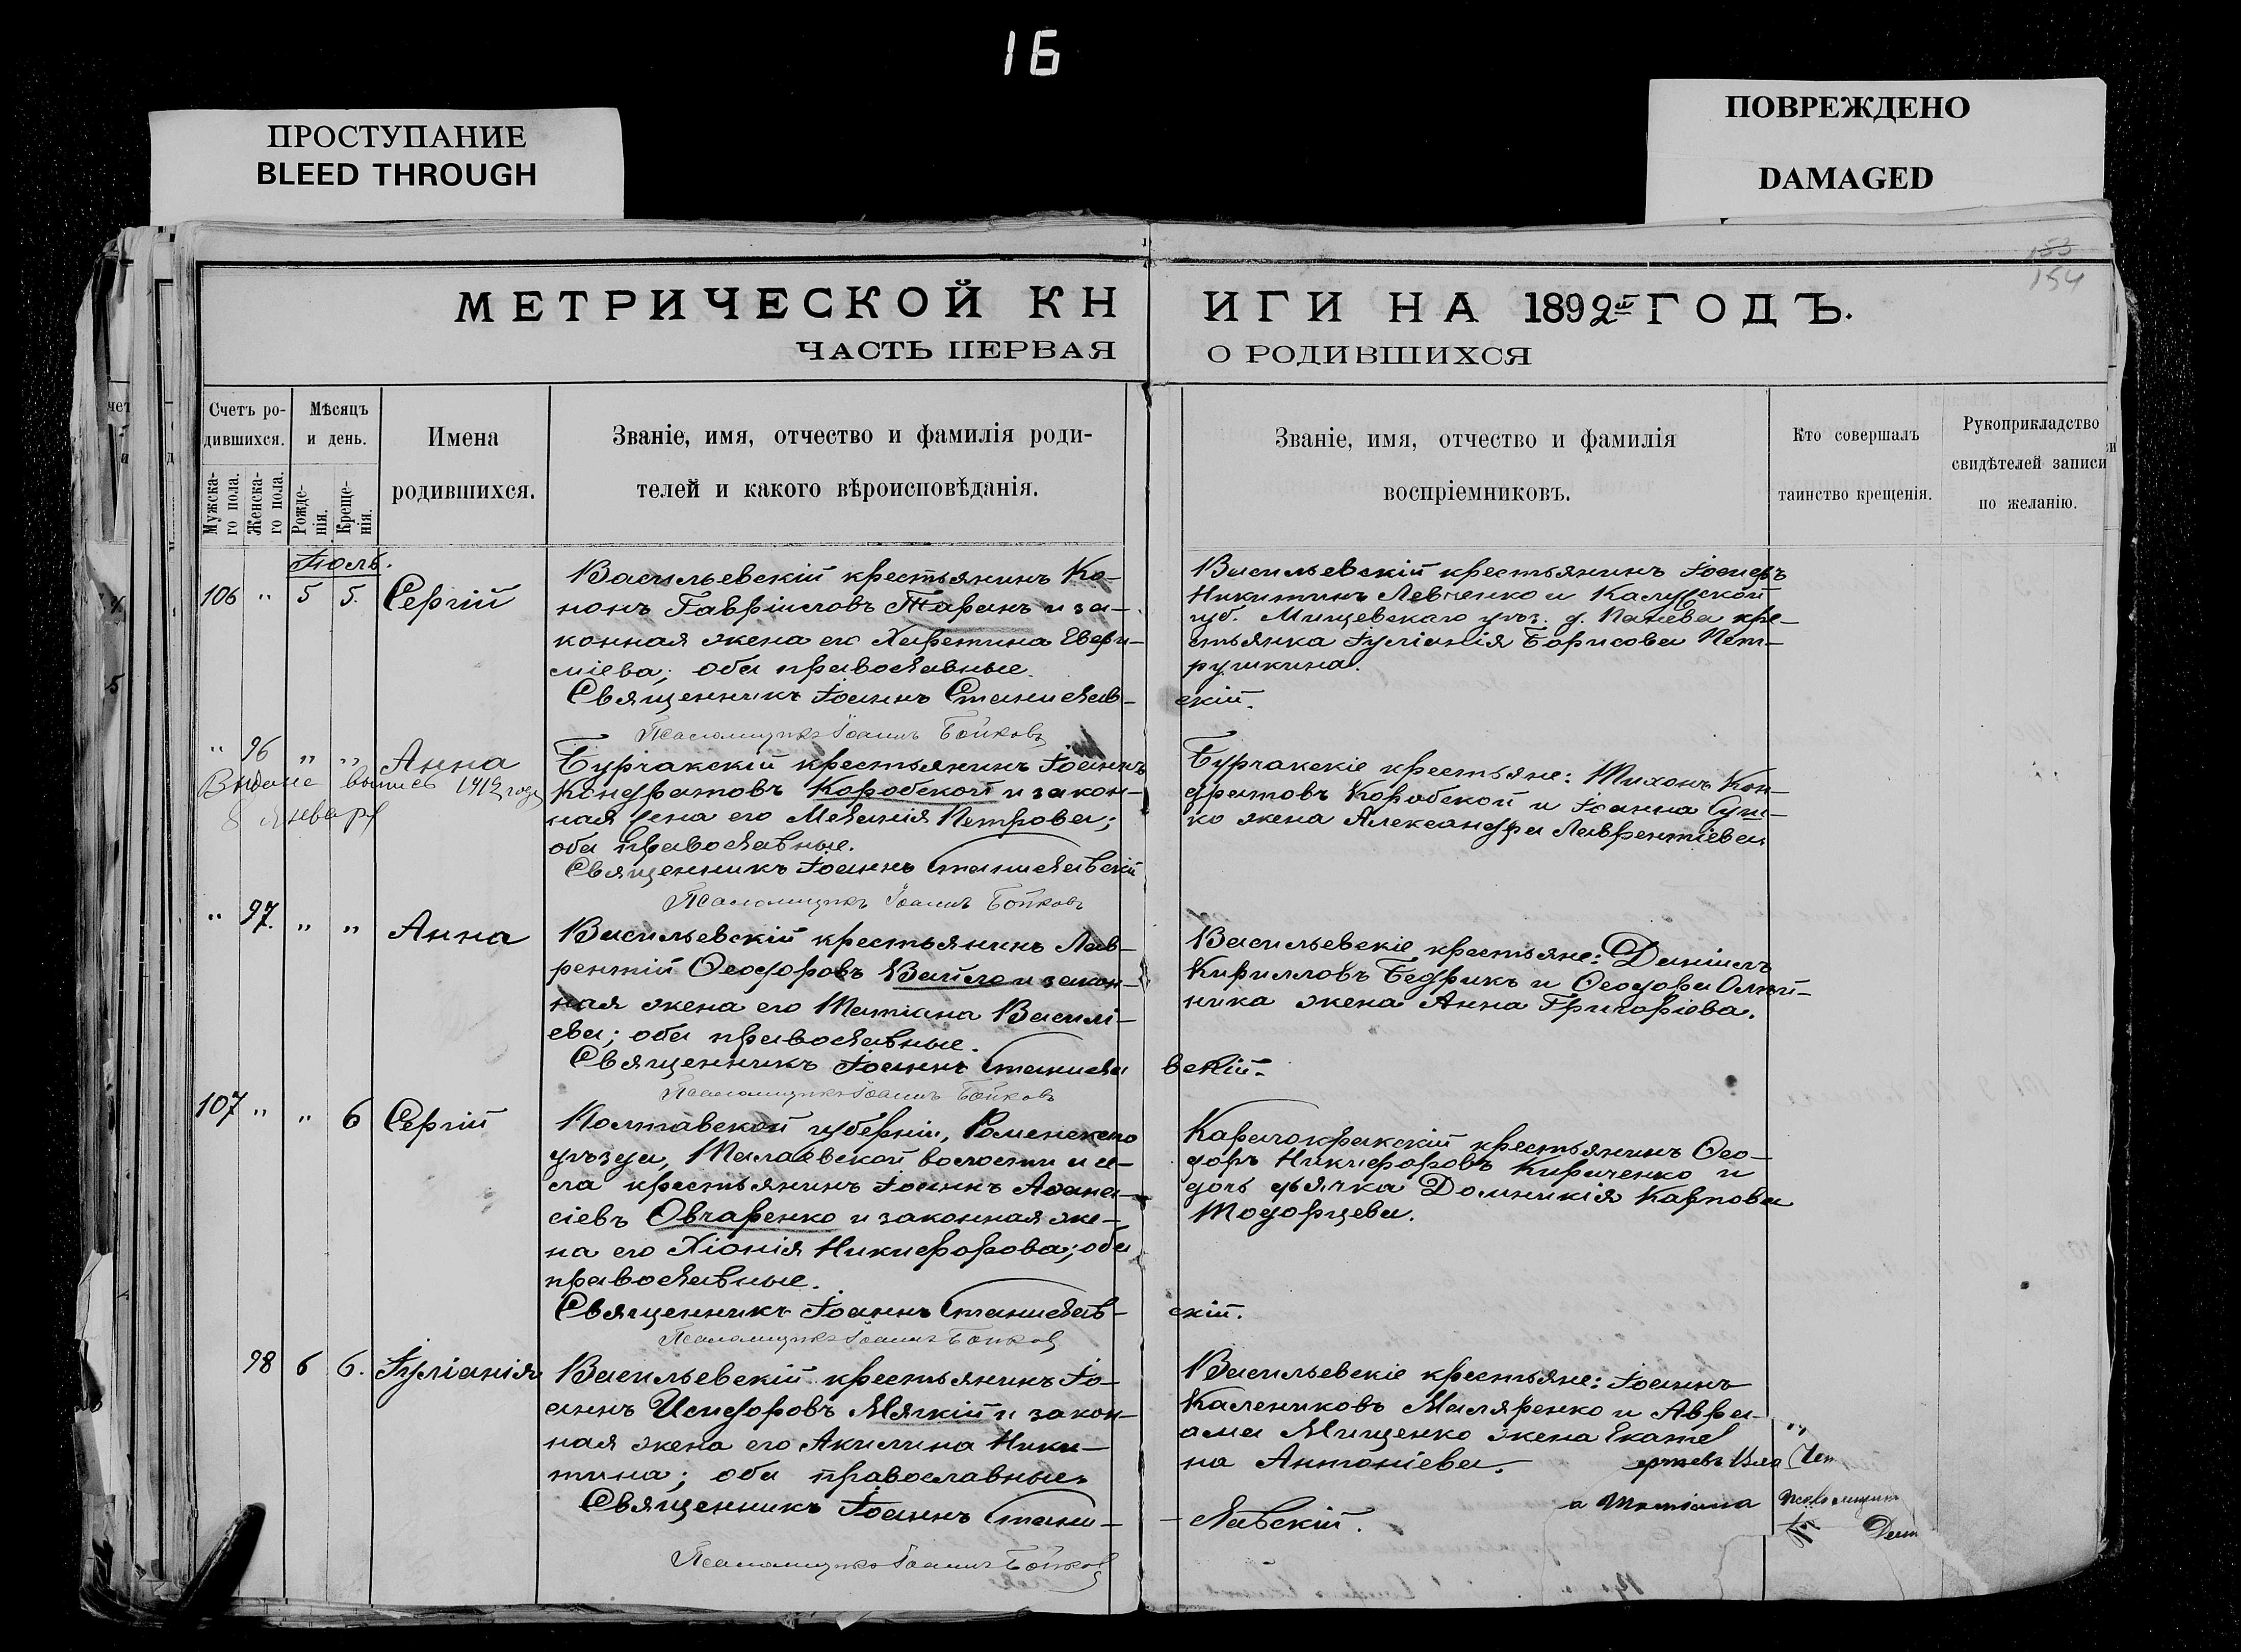 16
ПРОСТУПАНИЕ
BLEED THROUGH
ПОВРЕЖДЕНО
DAMAGED
153
154
МЕТРИЧЕСКОЙ КН
ИГИ НА 1892й ГОДЪ.
ЧАСТЬ ПЕРВАЯ
О РОДИВШИХСЯ
Счетъ ро-
дившихся.
Мужска-
го пола.
Женска-
го пола.
Мѣсяцъ
и день.
Рожде-
нія.
Креще-
нія.
Имена
родившихся.
Званіе, имя, отчество и фамилія роди-
телей и какого вѣроисповѣданія.
Званіе, имя, отчество и фамилія
воспріемниковъ.
Кто совершалъ
таинство крещенія.
Рукоприкладство
свидѣтелей записи
по желанію.
Іюль.
106 " 5 5. Сергій
Васильевскій крестьянинъ Ко-
нонъ Гавріиловъ Таранъ и за-
конная жена его Харетина Евфи-
міева; оба православные.
Священникъ Іоаннъ Станислав-
скій.
Псаломщикъ Іоаннъ Бойковъ
Васильевскій крестьянинъ Іосифъ
Никитинъ Левченко и Калужской
губ. Мищевскаго уѣз. д. кре-
стьянка Іуліанія Борисова Пет-
рушкина.
" 96 " " Анна
Выдана выпись 1912 года
8 Января
Бурчакскій крестьянинъ Іоаннъ
Кондратовъ Коробской и закон-
ная жена его Меланія Петрова;
оба православные.
Священникъ Іоаннъ Станиславскій
Псаломщикъ Іоаннъ Бойковъ
Бурчакскіе крестьяне: Тихонъ Кон-
дратовъ Коробской и Іоанна Суш-
ко жена Александра Лаврентіева
" 97. " " Анна
Васильевскій крестьянинъ Лав-
рентій Ѳеодоровъ Вайло и закон-
ная жена его Татіана Василі-
ева; оба православные.
Священникъ Іоаннъ Станисла
вскій.
Псаломщикъ Іоаннъ Бойковъ
Васильевскіе крестьяне: Даніилъ
Кирилловъ Бедрикъ и Ѳеодора Олѣй-
ника жена Анна Григоріева.
107 " " 6 Сергій
Полтавской губерніи, Роменскаго
уѣзда, Талаевской волости и се-
ла крестьянинъ Іоаннъ Аѳана-
сіевъ Овчаренко и законная же-
на его Хіонія Никифорова; оба
православные.
Священникъ Іоаннъ Станислав-
скій.
Псаломщикъ Іоаннъ Бойковъ
Карачокракскій крестьянинъ Ѳео-
доръ Никифоровъ Кириченко и
дочь дьячка Домникія Карпова
Тодорцева.
98 6 6. Іуліанія
Васильевскій крестьянинъ Іо-
аннъ Исидоровъ Мягкій и закон-
ная жена его Акилина Ники-
тина; оба православные.
Священникъ Іоаннъ Стани-
славскій.
Псаломщикъ Іоаннъ Бойковъ
Васильевскіе крестьяне: Іоаннъ
Калениковъ Маляренко и Авра-
ама Мищенко жена Екате
на Антоніева.
а Татіана